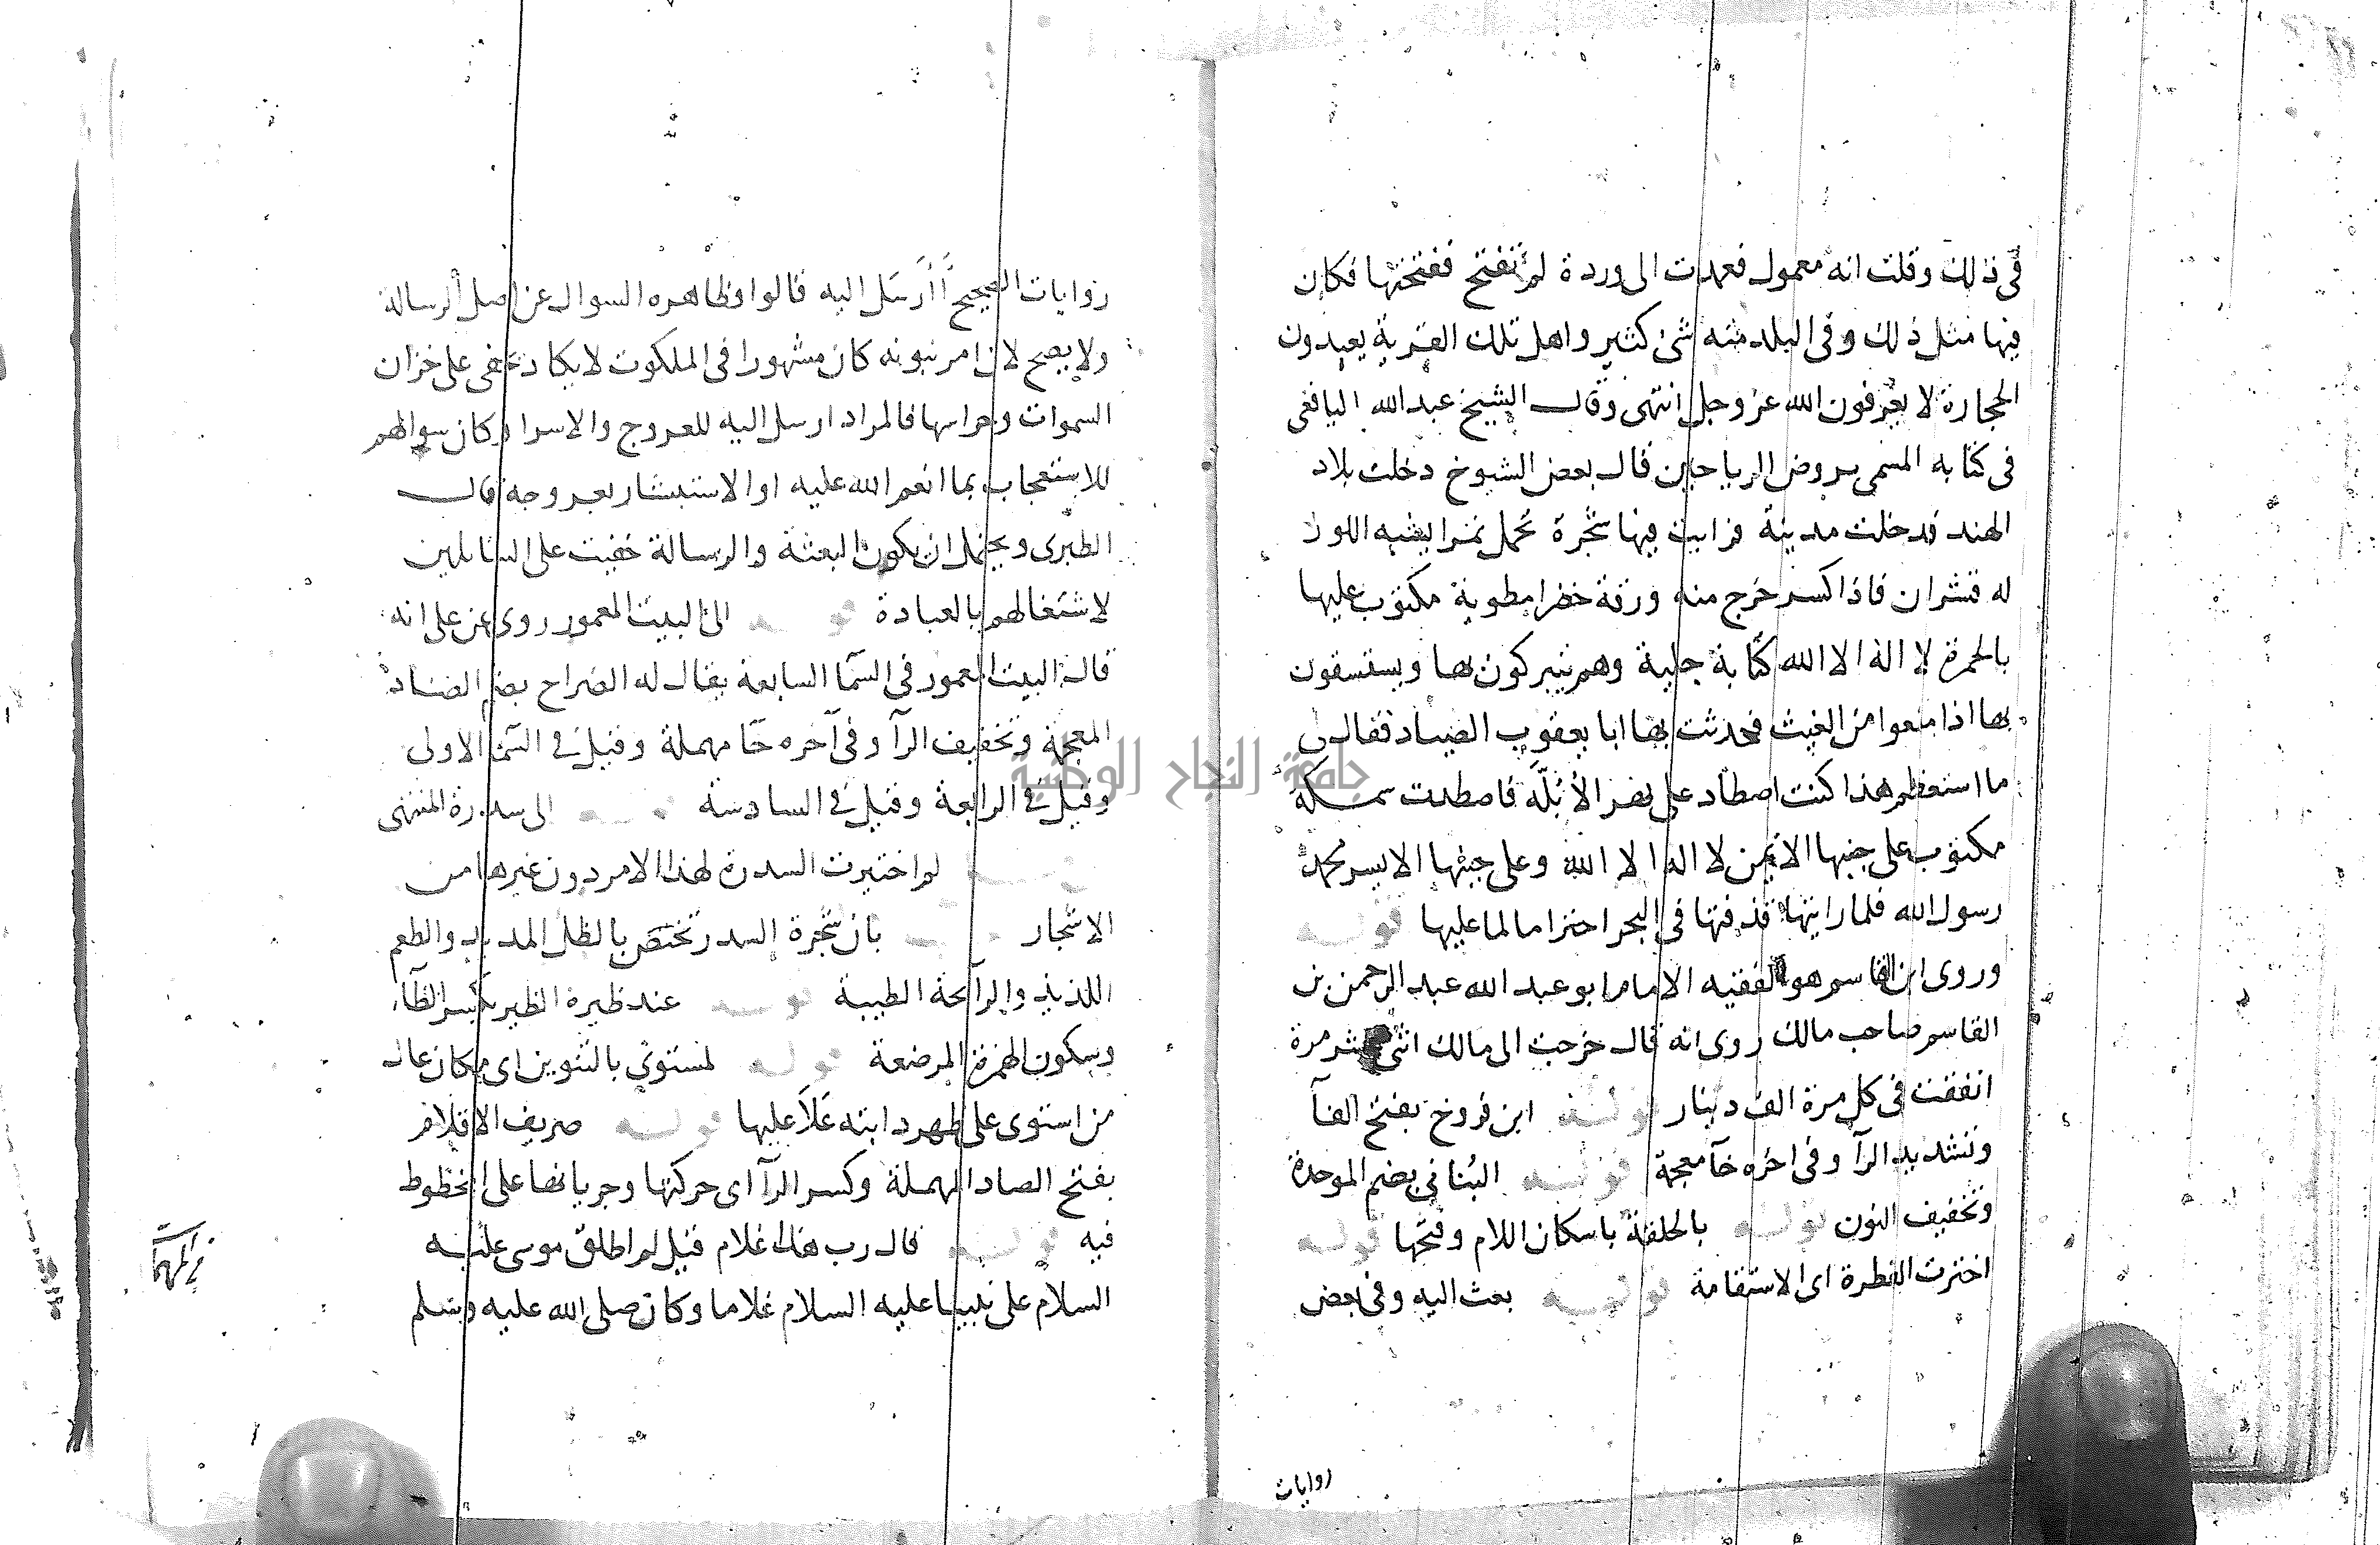 في ذلك وقلت انه معمول فعمدت الى وردة لم تفتح ففتحتها فكان
فيها مثل ذلك وفى البلد منه شئ كثير واهل تلك القرية يعبدون
الحجارة لا يعرفون الله عز وجل انتهى وقال الشيخ عبد الله اليافعى
فى كتابه المسمى بروض الرياحين قال بعض الشيوخ دخلت بلاد
الهند فدخلت مدينة فرايت فيها شجرة تحمل ثمرا يشبه اللوز
له قشران فاذا كسر خرج منه ورقة خضرا مطوية مكتوب عليها
بالحمرة لا اله الا الله كتابة جلية وهم يتبركون بها ويستسقون
بها اذا منعوا من الغيث فحدثت بها ابا يعقوب الصياد فقال لى
ما استعظم هذا كنت اصطاد على نهر الأبلّة فاصطدت سمكة
مكتوب على جنبها الايمن لا اله الا الله وعلى جنبها الايسر محمد
رسول الله فلما رايتها قذفتها فى البحر احتراما لما عليها قوله
وروى ابن القاسم هو الفقيه الامام ابو عبد الله عبد الرحمن بن
القاسم صاحب مالك روى انه قال خرجت الى مالك اثنى عشر مرة
انفقت فى كل مرة الف دينار قوله ابن فروخ بفتح الفآ
وتشديد الرآ وفى اخره خآ معجمة قوله البُنانى بضم الموحدة
وتخفيف النون قوله بالحلقة باسكان اللام وفتحها قوله
اخترت الفطرة اى الاستقامة قوله بعث اليه وفى بعض
روايات
روايات الصحيح أَأُرسَل اليه قالوا وظاهره السوال عن اصل الرسالة
ولا يصح لان امر نبوته كان مشهورا فى الملكوت لا يكاد يخفى على خزان
السموات وحراسها فالمراد ارسل اليه للعروج والاسرا وكان سوالهم
للاستعجاب بما انعم الله عليه او الاستبشار بعروجه قال
الطبرى ويحتمل ان يكون البعثة والرسالة خفيت على السايلين
لاشتغالهم بالعبادة قوله الى البيت المعمور روى عن على انه
قال البيت المعمور فى السّما السابعة يقال له الضراح بضم الضاد
المعجمة وتخفيف الرآ وفى آخره حا مهملة وقيل فى السّما الاولى
وقيل فى الرابعة وقيل فى السادسة قوله الى سدرة المنتهى
لم اختيرت السدرة لهذا الامر دون غيرها من
الاشجار بان شجرة السدر تختص بالظل المديد والطعم
اللذيذ والرآئحة الطيبة قوله عند ظيرة الظير بكسر الظآء
وسكون الهمزة المرضعة قوله لمستوىً بالتنوين اى مكان عال
من استوى على ظهر دابته عَلاَ عليها قوله صريف الاقلام
بفتح الصاد المهملة وكسر الرآ اى حركتها وجريانها على المخطوط
فيه قوله قال رب هذا غلام قيل لم اطلق موسى عليه
السلام على نبينا عليه السلام غلاما وكان صلى الله عليه وسلم
جامعة النجاح الوطنية